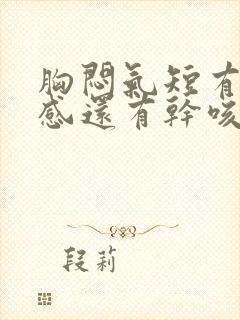 胸悶氣短有
感還有幹咳
段莉